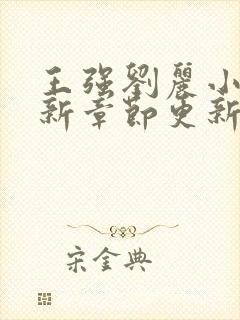 王强劉麗小
新章節更新
宋金典